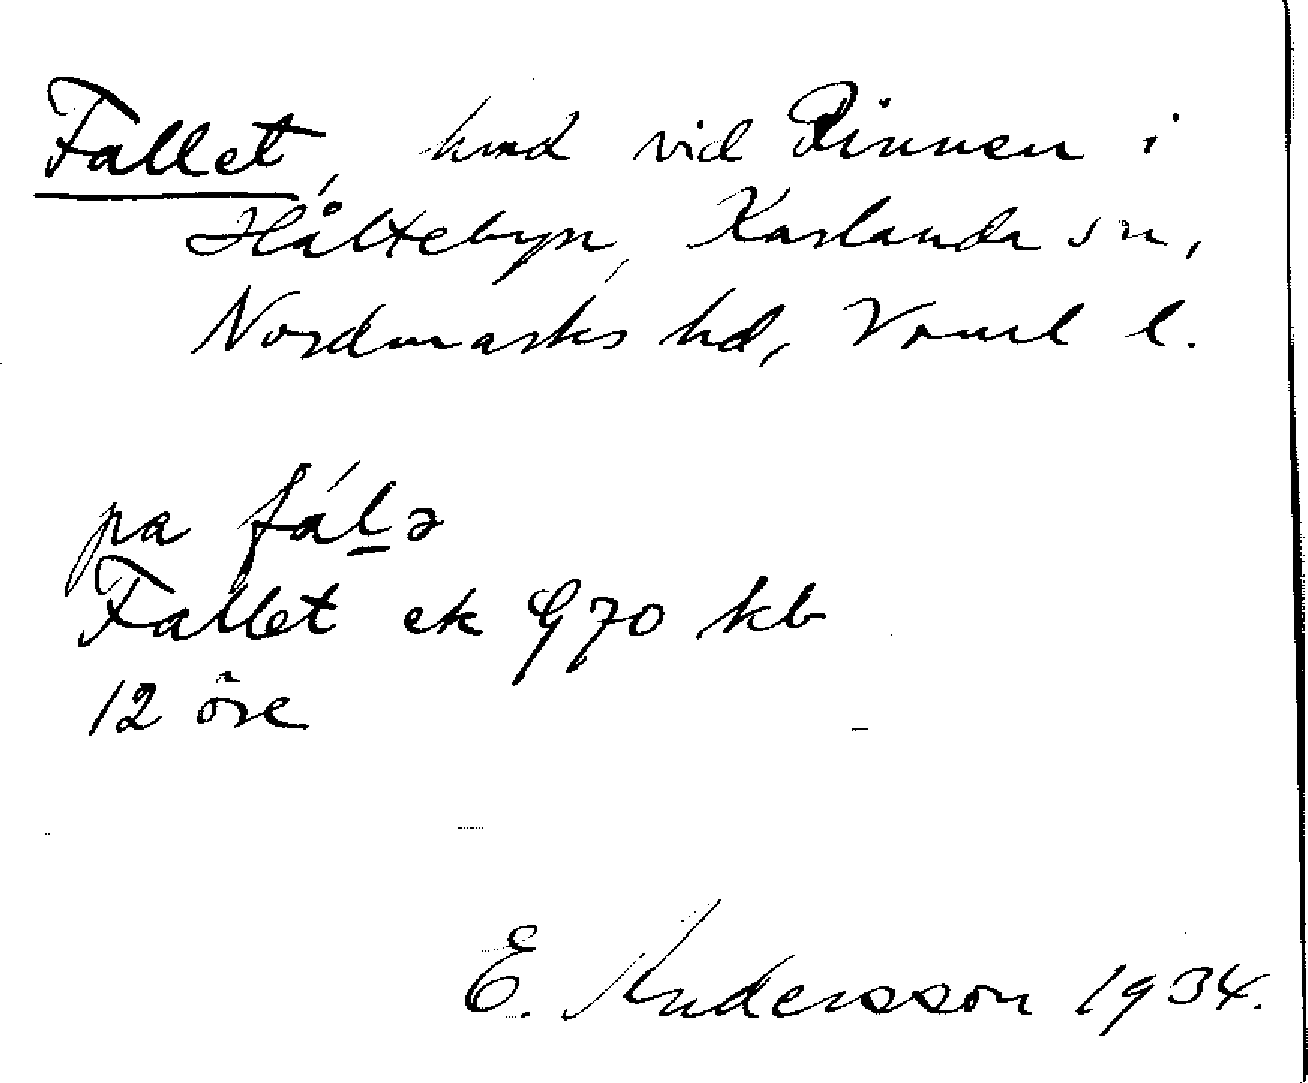 Fallet, hmd vid Rinnen i
Håltebyn, Karlanda sn,
Nordmarks hd, Vrml l.
pa fáḻə
Fallet ek 970 kb
12 öre
E. Andersson 1934.